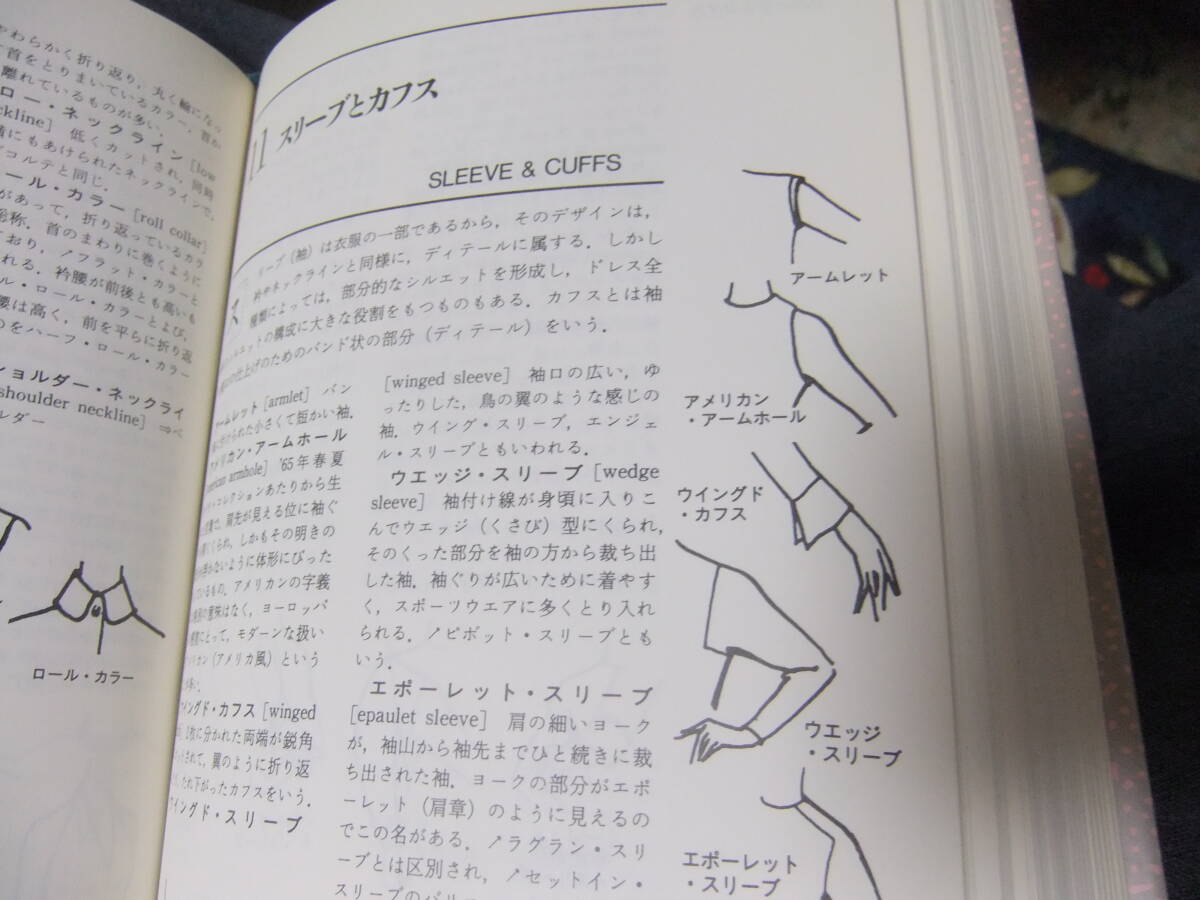 やわらかく折り返り，丸く輪になっ
首をとりまいているカラー．首か
離れているものが多い．
ロー・ネックライン [low
ckline] 低くカットされ，同時
コルテと同じ．
ール・カラー [roll collar]
があって，折り返っているカラ
総称．首のまわりに巻くように
ており，↗フラット・カラーと
れる．衿腰が前後とも高いも
ル・ロール・カラーとよび，
腰は高く，前を平らに折り返
のをハーフ・ロール・カラー
ショルダー・ネックライ
shoulder neckline] ⇒ベ
ルダー
ロール・カラー
11 スリーブとカフス
SLEEVE & CUFFS
リーブ（袖）は衣服の一部であるから，そのデザインは，
衿やネックラインと同様に，ディテールに属する．しかし
種類によっては，部分的なシルエットを形成し，ドレス全
シルエットの構成に大きな役割をもつものもある．カフスとは袖
仕上げのためのバンド状の部分（ディテール）をいう．
アームレット [armlet] バン
付けられた小さくて短かい袖．
アメリカン・アームホール
armhole] '65年春夏
コレクションあたりから生
肩先が見える位に袖ぐ
くられ，しかもその明きの
ないように体形にぴった
ているもの．アメリカンの字義
意味はなく，ヨーロッパ
にとって，モダーンな扱い
リカン（アメリカ風）という
ウイングド・カフス [winged
2枚に分かれた両端が鋭角
されて，翼のように折り返
たれ下がったカフスをいう．
ウイングド・スリーブ
[winged sleeve] 袖口の広い，ゆ
ったりした，鳥の翼のような感じの
袖．ウイング・スリーブ，エンジェ
ル・スリーブともいわれる．
ウエッジ・スリーブ [wedge
sleeve] 袖付け線が身頃に入りこ
んでウエッジ（くさび）型にくられ，
そのくった部分を袖の方から裁ち出
した袖．袖ぐりが広いために着やす
く，スポーツウエアに多くとり入れ
られる．↗ピボット・スリーブとも
いう．
エポーレット・スリーブ
[epaulet sleeve] 肩の細いヨーク
が，袖山から袖先までひと続きに裁
ち出された袖．ヨークの部分がエポ
ーレット（肩章）のように見えるの
でこの名がある．↗ラグラン・スリ
ーブとは区別され，↗セットイン・
スリーブのバリ
アームレット
アメリカン
・アームホール
ウイングド
・カフス
ウエッジ
・スリーブ
エポーレット
・スリーブ